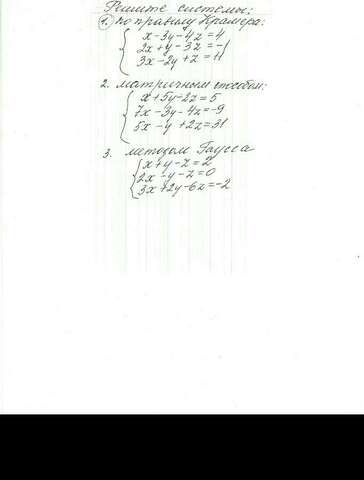 Решите системы:
1. по правилу Крамера:
x-3y-4z=4
2x+y-3z=-1
3x-2y+z=11
2. матричным способом:
x+5y-2z=5
7x-3y-4z=-9
5x-y+2z=31
3. методом Гаусса
x+y-z=2
2x-y-z=0
3x+2y-6z=-2